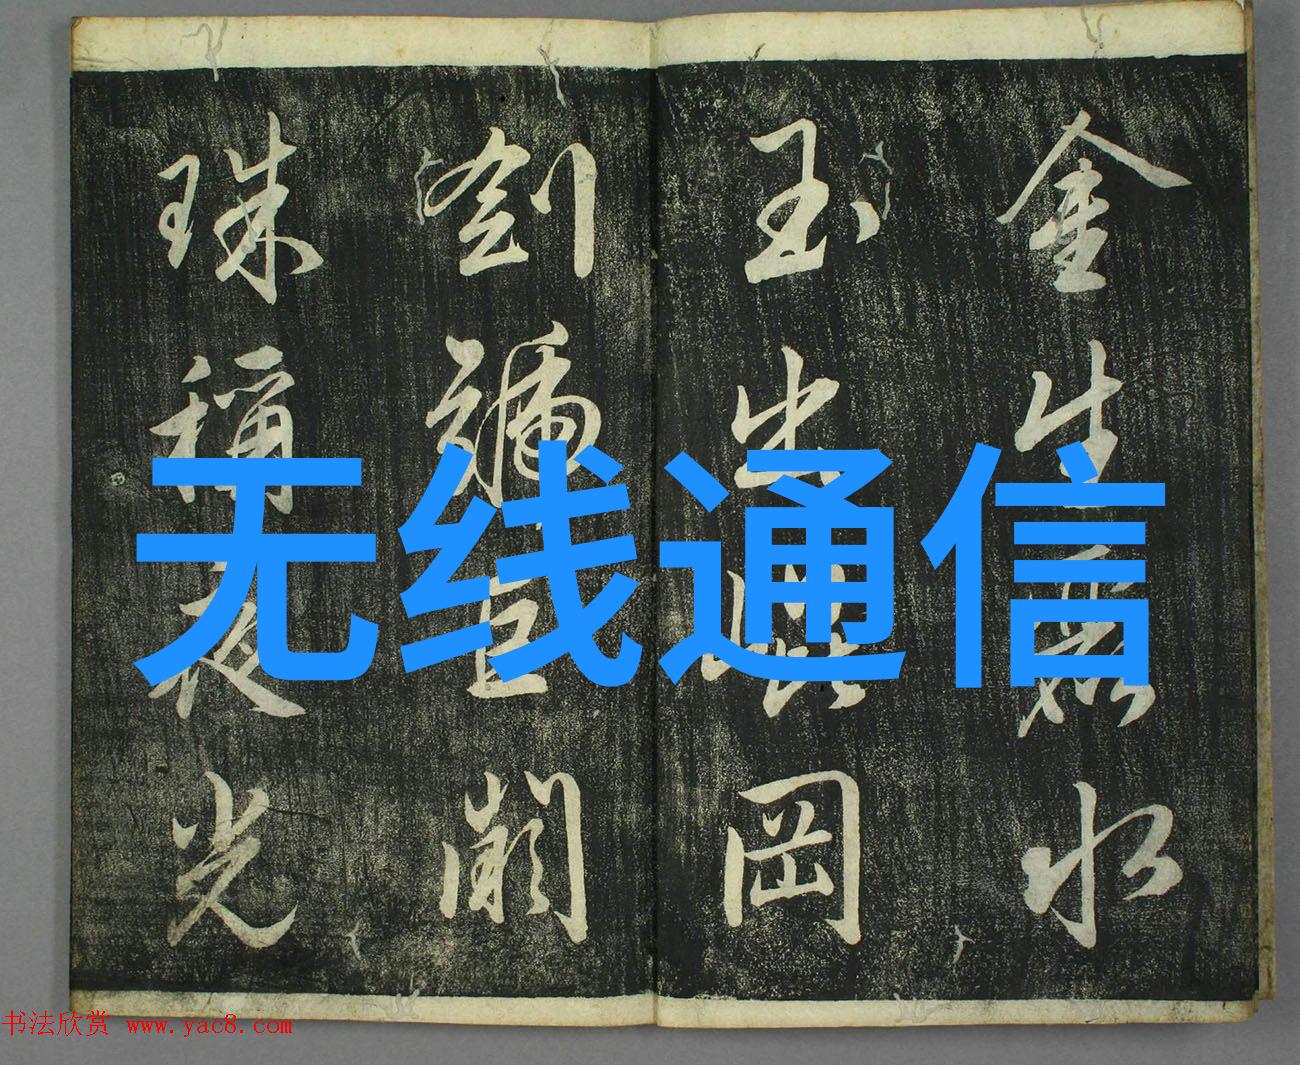 金生麗水
玉出崐岡
劍號巨闕
珠稱夜光
无线通信
书法欣赏 www.yac8.com